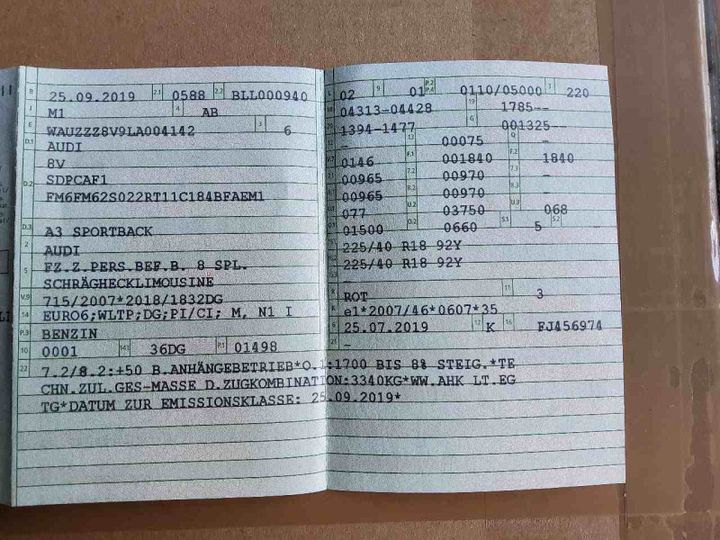 B 25.09.2019 2.1 0588 2.2 BLL000940
J M1 4 AB
E WAUZZZ8V9LA004142 3 6
D.1 AUDI
8V
D.2 SDPCAF1
FM6FM62S022RT11C184BFAEM1
D.3 A3 SPORTBACK
2 AUDI
5 FZ.Z.PERS.BEF.B. 8 SPL.
SCHRÄGHECKLIMOUSINE
V.9 715/2007*2018/1832DG
14 EURO6;WLTP;DG;PI/CI; M, N1 I
P.3 BENZIN
10 0001 14.1 36DG P.1 01498
22 7.2/8.2:+50 B.ANHÄNGEBETRIEB*O.1:1700 BIS 8% STEIG.*TE
CHN.ZUL.GES-MASSE D.ZUGKOMBINATION:3340KG*WW.AHK LT.EG
TG*DATUM ZUR EMISSIONSKLASSE: 25.09.2019*
L 02 9 01 P.2 P.4 0110/05000 T 220
18 04313-04428 19 1785--
1394-1477 G 001325--
- 13 00075 Q -
0146 F.1 001840 F.2 1840
00965 7.2 00970 7.3 -
00965 8.2 00970 8.3 -
077 U.2 03750 U.3 068
01500 O.2 0660 S.1 5 S.2 -
225/40 R18 92Y
225/40 R18 92Y
-
R ROT 11 3
K e1*2007/46*0607*35
6 25.07.2019 17 K 16 FJ456974
21 -